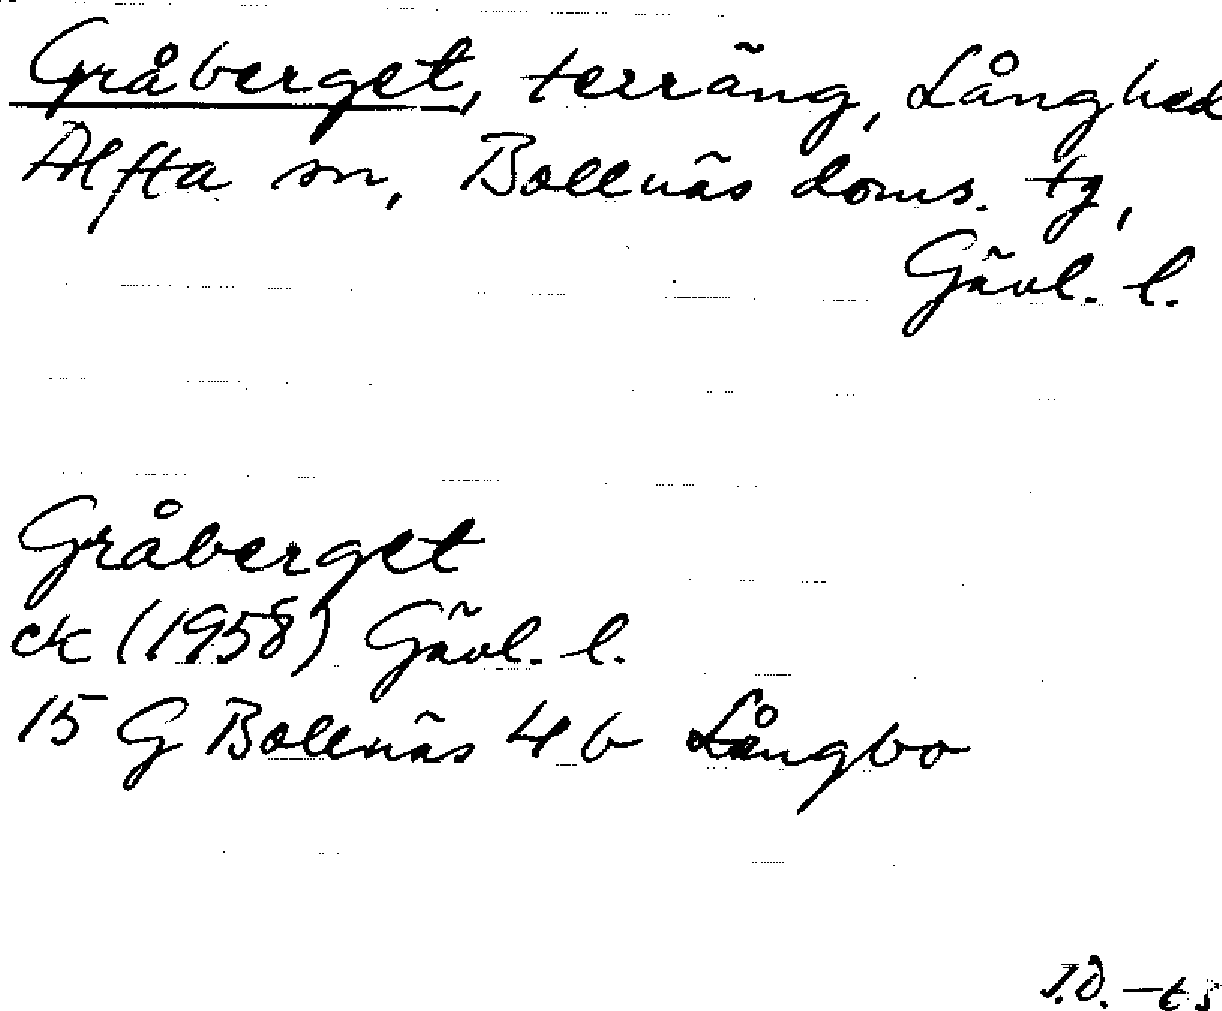 Gråberget, terräng, Långhed
Alfta sn, Bollnäs doms. tg,
Gävl. l.
Gråberget
ek (1958) Gävl. l.
15 G Bollnäs 4 b Långbo
J.D.